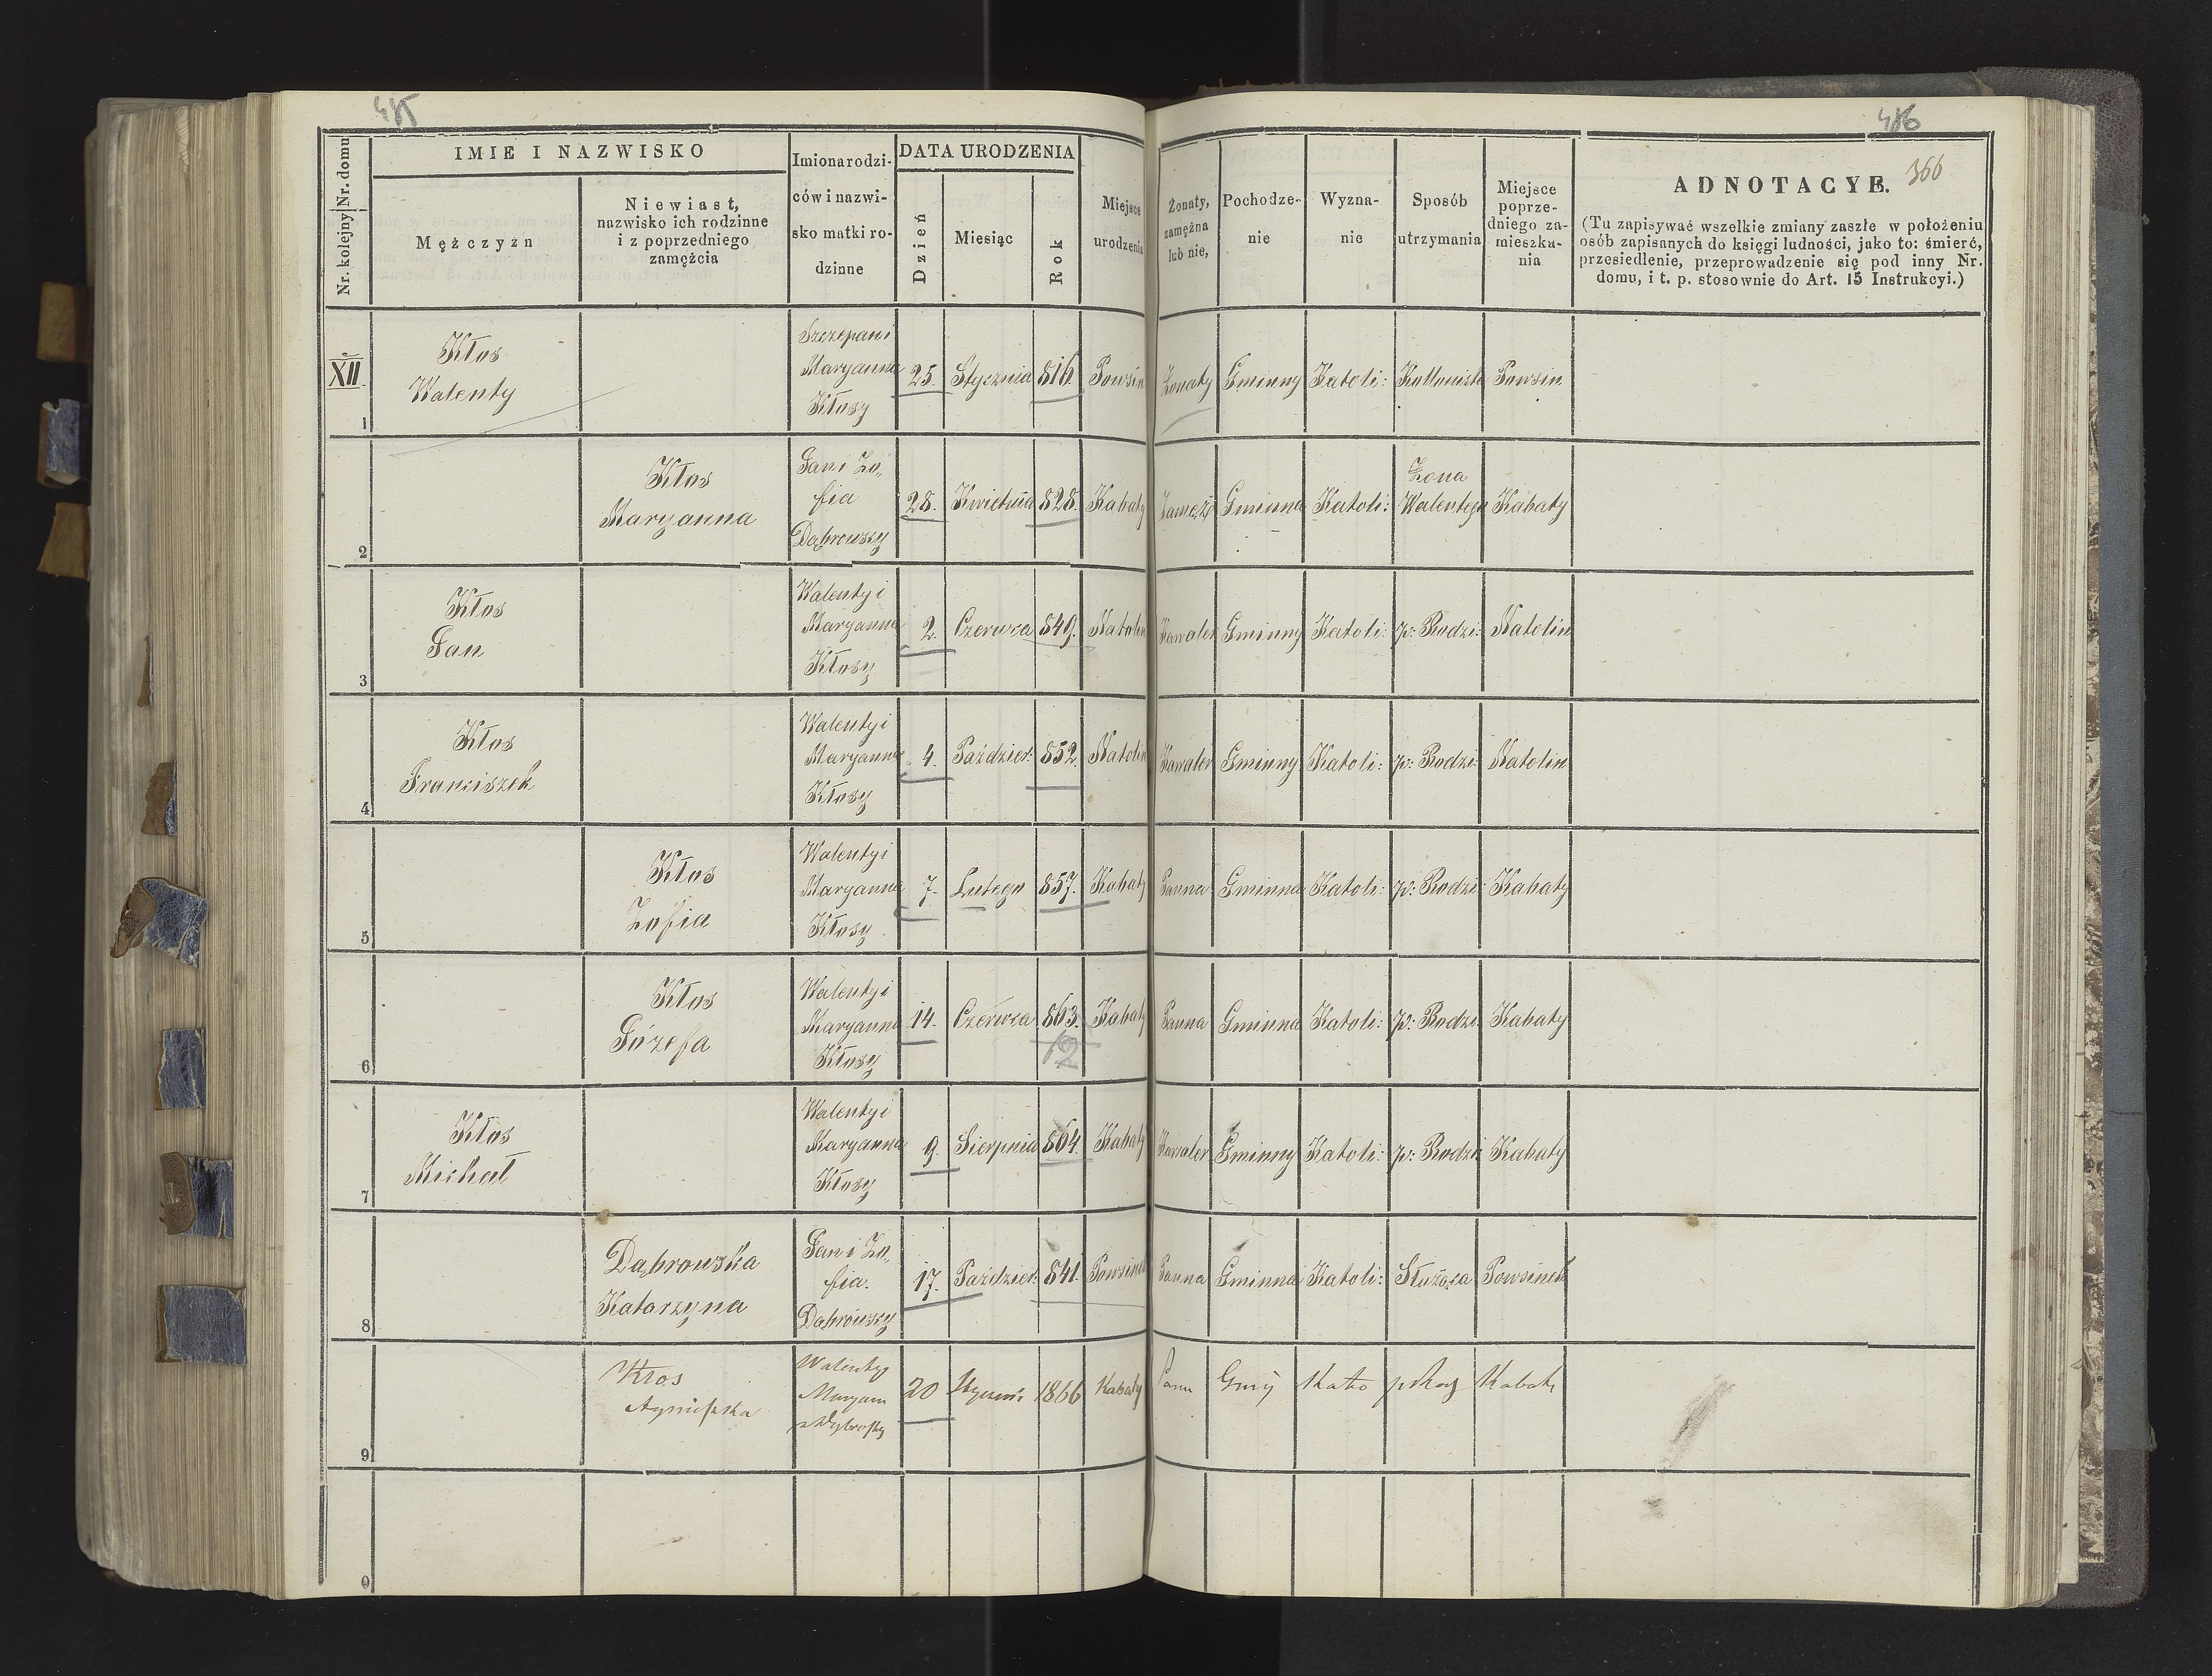 485
486
366
Nr. kolejny Nr. domu
IMIE I NAZWISKO
Mężczyzn
Niewiast,
nazwisko ich rodzinne
i z poprzedniego
zamężcia
Imiona rodzi-
ców i nazwi-
sko matki ro-
dzinne
DATA URODZENIA
Dzień
Miesiąc
Rok
Miejsce
urodzenia
Żonaty,
zamężna
lub nie,
Pochodze-
nie
Wyzna-
nie
Sposób
utrzymania
Miejsce
poprze-
dniego za-
mieszka-
nia
ADNOTACYE.
(Tu zapisywać wszelkie zmiany zaszłe w położeniu
osób zapisanych do księgi ludności, jako to: śmierć,
przesiedlenie, przeprowadzenie się pod inny Nr.
domu, i t. p. stosownie do Art. 15 Instrukcyi.)
XII
1
Kłos
Walenty
Szczepan i
Maryanna
Kłosy
25.
Stycznia
816.
Powsin
Żonaty
Gminny
Katoli:
Kollonista
Powsin
2
Kłos
Maryanna
Jan i Zo„
fia
Dąbrowscy
28.
Kwietnia
828.
Kabaty
Zamęż:
Gminna
Katoli:
Żona
Walentego
Kabaty
3
Kłos
Jan
Walenty i
Maryanna
Kłosy
2.
Czerwca
849.
Natolin
Kawaler
Gminny
Katoli:
p: Rodzi:
Natolin
4
Kłos
Franciszek
Walenty i
Maryanna
Kłosy
4.
Paździer:
852.
Natolin
Kawaler
Gminny
Katoli:
p: Rodzi:
Natolin
5
Kłos
Zofia
Walenty i
Maryanna
Kłosy
7.
Lutego
857.
Kabaty
Panna
Gminna
Katoli:
p: Rodzi:
Kabaty
6
Kłos
Józefa
Walenty i
Maryanna
Kłosy
14.
Czerwca
863.
12
Kabaty
Panna
Gminna
Katoli:
p: Rodzi:
Kabaty
7
Kłos
Michał
Walenty i
Maryanna
Kłosy
9.
Sierpnia
864.
Kabaty
Kawaler
Gminny
Katoli:
p: Rodzi
Kabaty
8
Dąbrowska
Katarzyna
Jan i Zo„
fia.
Dąbrowscy
17.
Paździer:
841.
Powsinek
Panna
Gminna
Katoli:
Służąca
Powsinek
9
Kłos
Agnieszka
Walenty
Maryan
20
1866
Kabaty
Pann
Katol
Kabaty
0